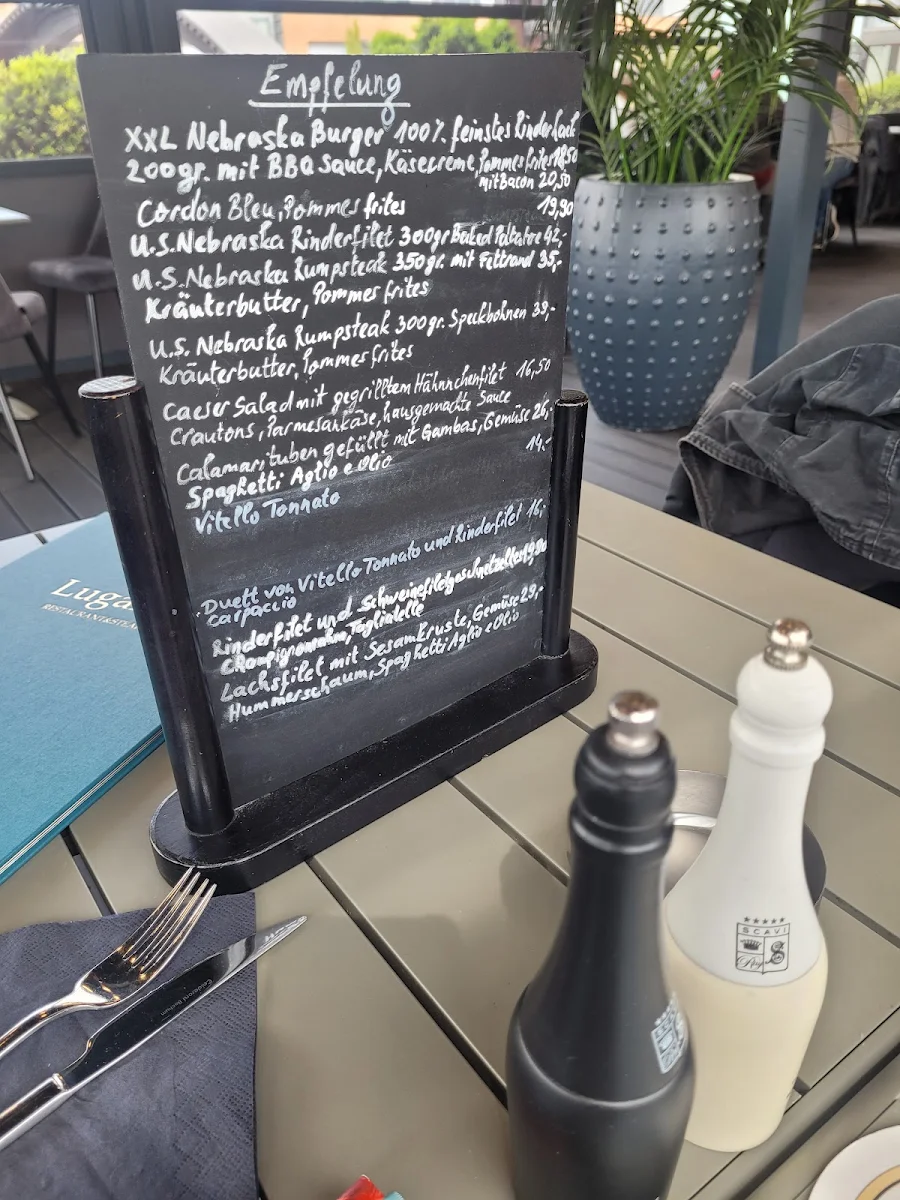 Empfelung
XXL Nebraska Burger 100% feinstes Rinderhack
200gr. mit BBQ Sauce, Käsecreme, Pommes frites 18,50
mit Bacon 20,50
Cordon Bleu, Pommes frites 19,90
U.S. Nebraska Rinderfilet 300gr Baked Paltatoe 42,-
U.S. Nebraska Rumpsteak 350gr. mit Fettrand 35,-
Kräuterbutter, Pommes frites
U.S. Nebraska Rumpsteak 300gr. Speckbohnen 39,-
Kräuterbutter, Pommes frites
Caeser Salad mit gegrilltem Hähnchenfilet 16,50
Crautons, Parmesankäse, hausgemachte Sauce
Calamarituben gefüllt mit Gambas, Gemüse 26,-
Spaghetti Aglio e Olio
Vitello Tonnato 14.-
Duett von Vitello Tonnato und Rinderfilet 16,-
Carpaccio
Rinderfilet und Schweinefiletgeschnetzeltes 19,90
Champignonrahm, Tagliatelle
Lachsfilet mit Sesamkruste, Gemüse 29,-
Hummerschaum, Spaghetti Aglio e Olio
Luga
RESTAURANT & STEA
SCAVI
Ray
S